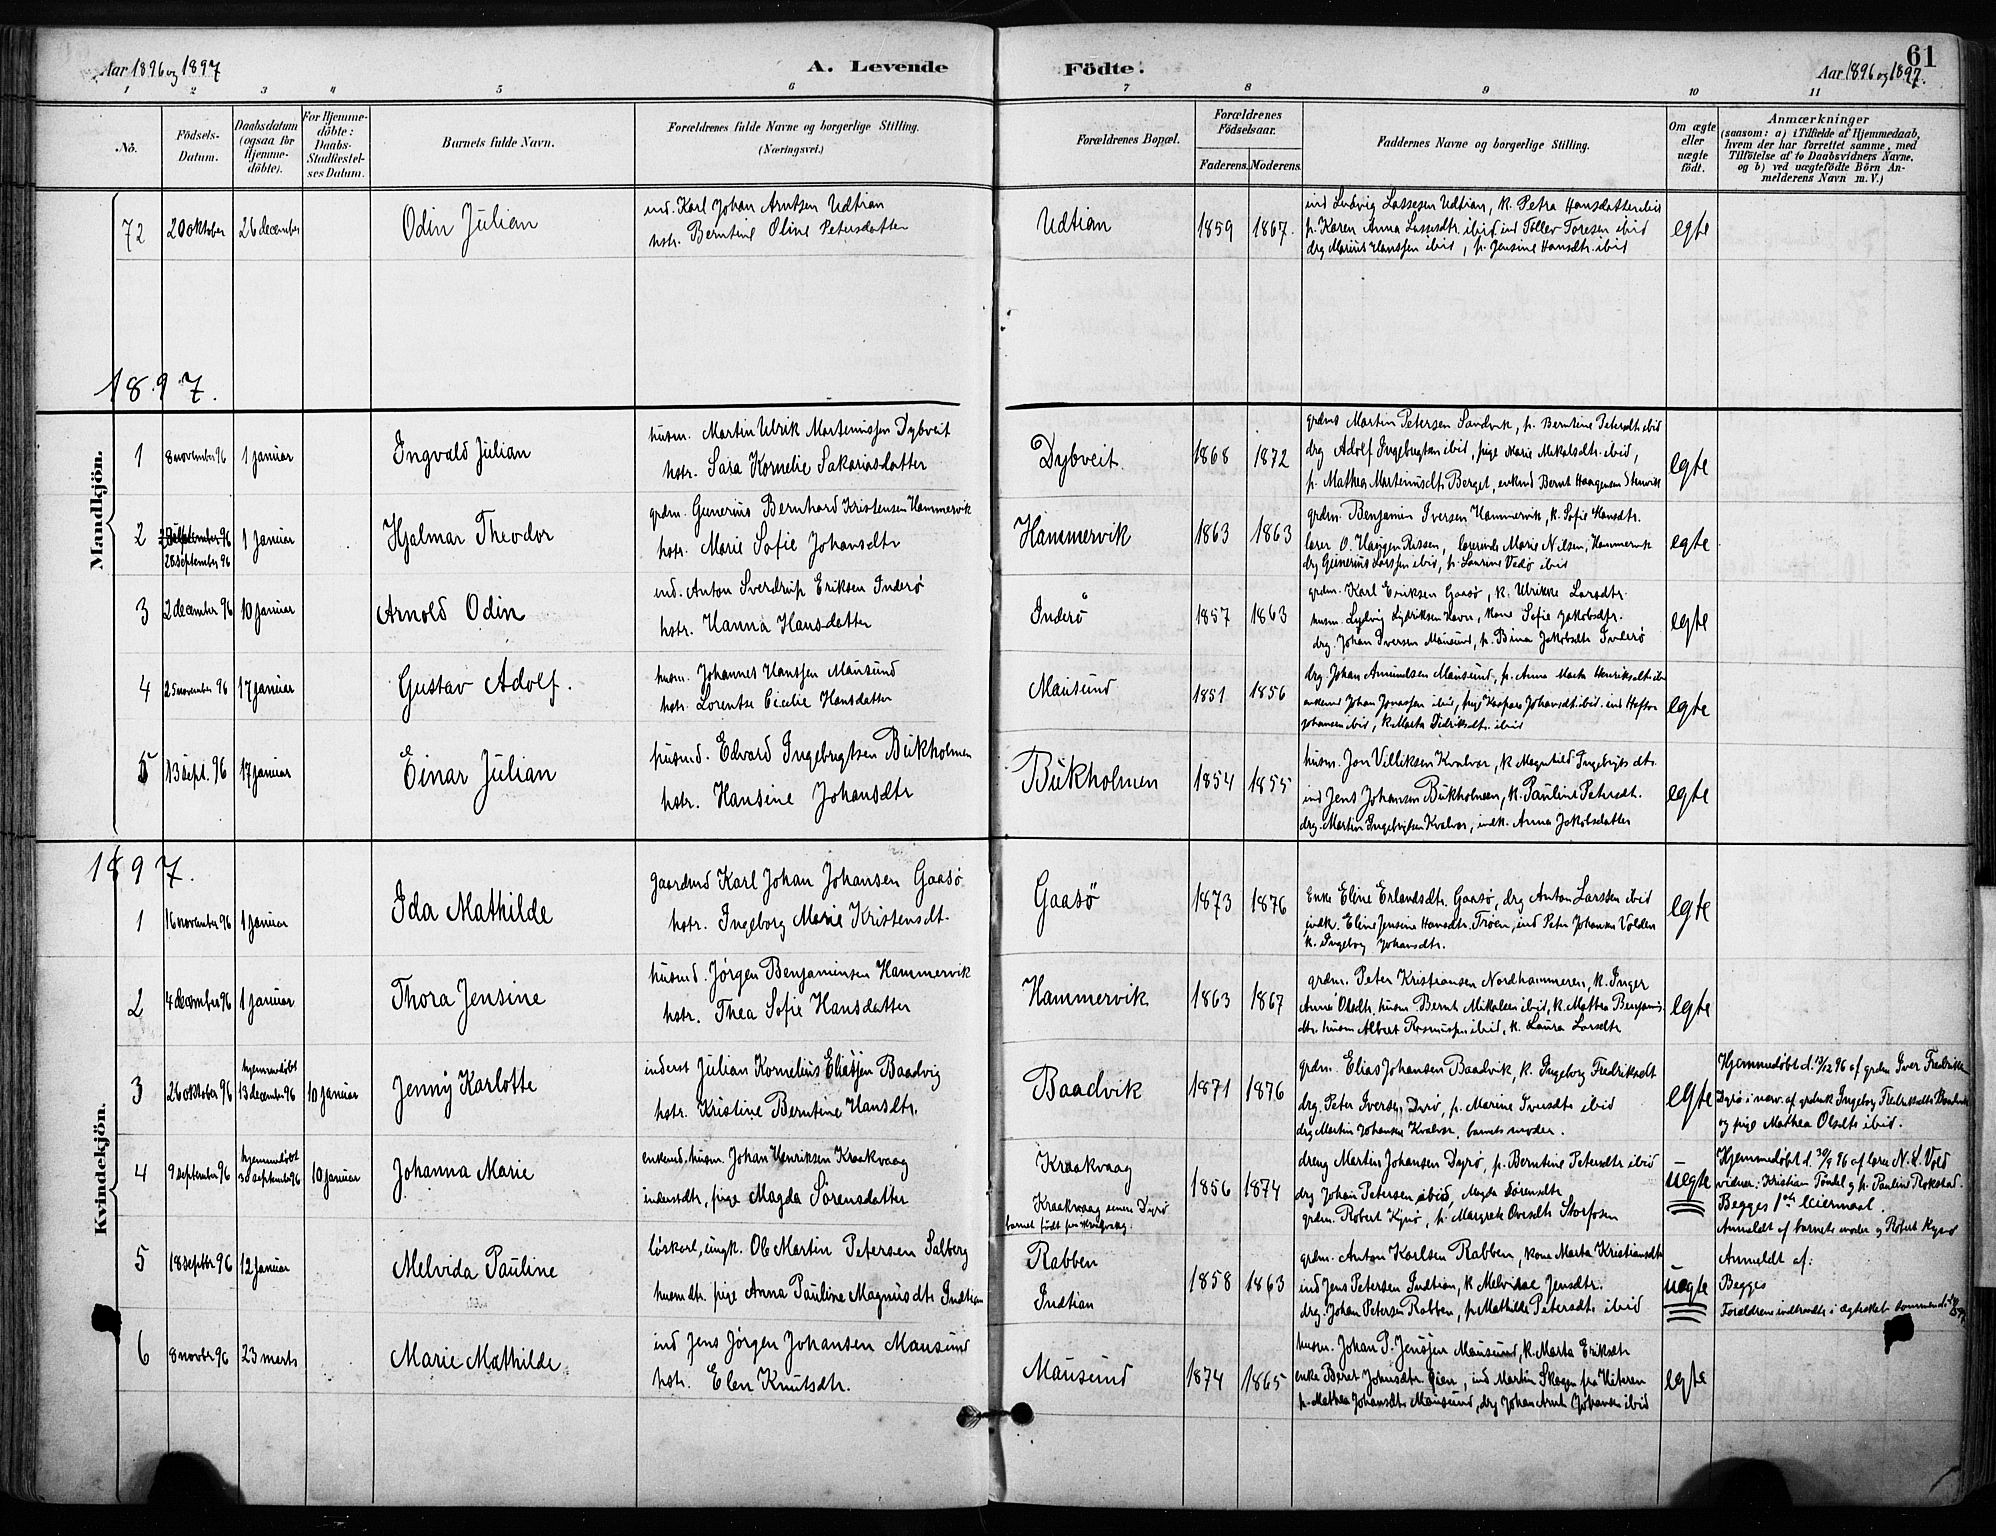 Aar 1896 og 1897
A. Levende Födte.
61
Aar 1896 og 1897.
1 2 3 4 5 6 7 8 9 10 11
No.
Födsels-Datum.
Daabsdatum (ogsaa for Hjemmedöbte).
For Hjemmedöbte: Daabs-Stadfæstelses Datum.
Barnets fulde Navn.
Forældrenes fulde Navne og borgerlige Stilling. (Næringsvei.)
Forældrenes Bopæl.
Forældrenes Födselsaar.
Faderens. Moderens.
Faddernes Navne og borgerlige Stilling.
Om ægte eller uægte födt.
Anmærkninger
(saasom: a) i Tilfælde af Hjemmedaab, hvem der har forrettet samme, med Tilföielse af to Daabsvidners Navne, og b) ved uægtefödte Börn Anmelderens Navn m. V.)
72 20 oktober 26 december Odin Julian
ind. Karl Johan Arntsen Udtian
hstr. Berntine Oline Petersdatter
Udtian 1859 1867.
ind Ludvig Lassesen Udtian, k. Petra Hansdatter ibid
p. Karen Anna Lassesdtr. ibid, ind Tollev Toresen ibid
drg Marius Hanssen ibid, p. Jensine Hansdtr. ibid
egte
1897.
Mandkjön.
1 8 november 96 1 januar Ingvald Julian
husm. Martin Ulrik Martinussen Dybveit
hstr. Sara Kornelie Sakariasdatter
Dybveit. 1868 1872
grdms Martin Petersen Sandvik, p. Berntine Petersdt ibid
drg Adolf Ingebrigtsen ibid, pige Marie Mikalsdtr. ibid,
p. Mathea Martinusdtr Berget, enkemd Bernt Haagensen
egte
2 28 september 96 1 januar Hjalmar Theodor
grdm. Gunerius Bernhard Kristensen Hammervik
hstr. Marie Sofie Johansdtr
Hammervik 1863 1863
grdm. Benjamin Iversen Hammervik, k. Sofie Hansdtr.
lærer O. Rissen, lærerinde Marie Nilsen, Hammervik
drg Gunerius Larssen ibid, p. Laurine Vedø ibid
egte
3 2 december 96 10 januar Arnold Odin
ind. Anton Sverdrup Eriksen Inderø
hstr. Hanna Hansdatter
Inderø 1857 1863
grdm. Karl Eriksen Gaasø, k. Ulrikke Larsdtr.
husm. Ludvig Lydriksen Havn, kone Sofie Jakobsdtr.
drg. Johan Iversen Mausund, p. Bina Jakobsdtr Inderø
egte
4 25 november 96 17 januar Gustav Adolf.
husm. Johannes Hanssen Mausund
hstr. Lorentse Cecilie Hansdatter
Mausund 1851 1856
drg. Johan Amundsen Mausund, p. Anna Marta Henriksdtr ibid
enkemd Johan Jonassen ibid, pige Kaspara Johansdt. ibid. ind
Johansen ibid, k. Marta Didriksdtr. ibid
egte
5 13 sept. 96 17 januar Einar Julian
husmd. Edvard Ingebrigtsen Bukholmen
hstr. Hansine Johansdtr
Bukholmen 1854 1855
husm. Jon Villiksen Kvalvar, k. Magnhild Ingebrigtsdtr.
ind Jens Johansen Bukholmen, k. Pauline Petersdt.
drg. Martin Ingebrigtsen Kvalvar, indk. Anna Jakobsdatter
egte
1897.
Kvindekjön.
1 16 november 96 1 januar Ida Mathilde
gaardmd Karl Johan Johansen Gaasø
hstr. Ingeborg Marie Kristensdt.
Gaasö 1873 1876
Enke Eline Erlandsdtr. Gaasø, drg Anton Larssen ibid
indk. Eline Jensine Hansdtr. Trøen, ind Peter Johansen Volden
k. Ingebog Johansdtr.
egte
2 4 december 96 1 januar Thora Jensine
husmd. Jørgen Benjaminsen Hammervik
hstr. Thea Sofie Hansdatter
Hammervik 1863 1867
grdm. Peter Kristiansen Nordhammeren, k. Inger
Anna Olsdtr. husm. Bernt Mikkelsen ibid, k. Mathea Benjamins
dtr. husm Albert Rasmussen ibid, k. Laura Larsdtr
egte
3 26 oktober 96 hjemmedøbt 13 december 96 10 januar Jenny Karlotte
inderst Julian Kornelius Eliassen Baadvig
hstr. Kristine Berntine Hansdtr.
Baadvik 1871 1876
grdm. Elias Johansen Baadvik, k. Ingeborg Fredriksdt
drg. Peter Iversen Dyrø, p. Marine Iversdtr ibid
drg Martin Johansen Kvalvær, barnets moder.
egte
Hjemmedøbt d. 13/12 96 af grdm Iver Fredriksen
Dyrø i nærv. af grdmk Ingeborg Fredriksdtr Baadvik
og pige Mathea Olsdtr ibid.
4 9 september 96 hjemmedöbt 30 september 96 10 januar Johanna Marie
enkemd, husm. Johan Henriksen Kraakvaag
inderstdtr, pige Magda Sörensdatter
Kraakvaag
Kraakvaag senere Dyrø
barnet født paa Kraakvaag.
1856 1874
dreng Martin Johansen Dyrø, p. Berntine Petersdtr ibid
drg Johan Petersen ibid, Magda Sörensdtr
grdm. Robert Kyrø, p. Margrete Oversdtr Storfosen
uegte
Hjemmedøbt d. 30/9 96 af lærer N. L. Vold
vidner: Kristian Töndel og p. Pauline Rokstad.
Begges 1ste leiermaal.
Anmeldt af barnets moder og Robert Kyrø
5 18 septbr 96 12 januar Melvida Pauline
løskarl, ungk. Ole Martin Petersen Salberg
husmdtr. pige Anna Pauline Magnusdtr Indtian
Rabben
Indtian
1858 1863
grdm. Anton Karlsen Rabben, kone Marta Kristiansdtr
ind Jens Petersen Indtian, k. Melvidae Jensdtr.
drg. Johan Petersen Rabben, p. Mathilde Petersdtr ibid
uegte
Anmeldt af:
Begges
Forældrene indtraadte i ægteskab sammen
6 8 novbr 96 23 marts Marie Mathilde
ind Jens Jørgen Johansen Mausund
hstr. Elen Knutsdtr.
Mausund 1874 1865
husm. Johan P. Jenssen Mausund, k. Marta Eriksdtr
enke Beret Johnsdtr Øien, ind Martin Skagen fra Hiteren
p. Mathea Johansdtr Mausund, drg Johan Arnt Johansen ibid
egte